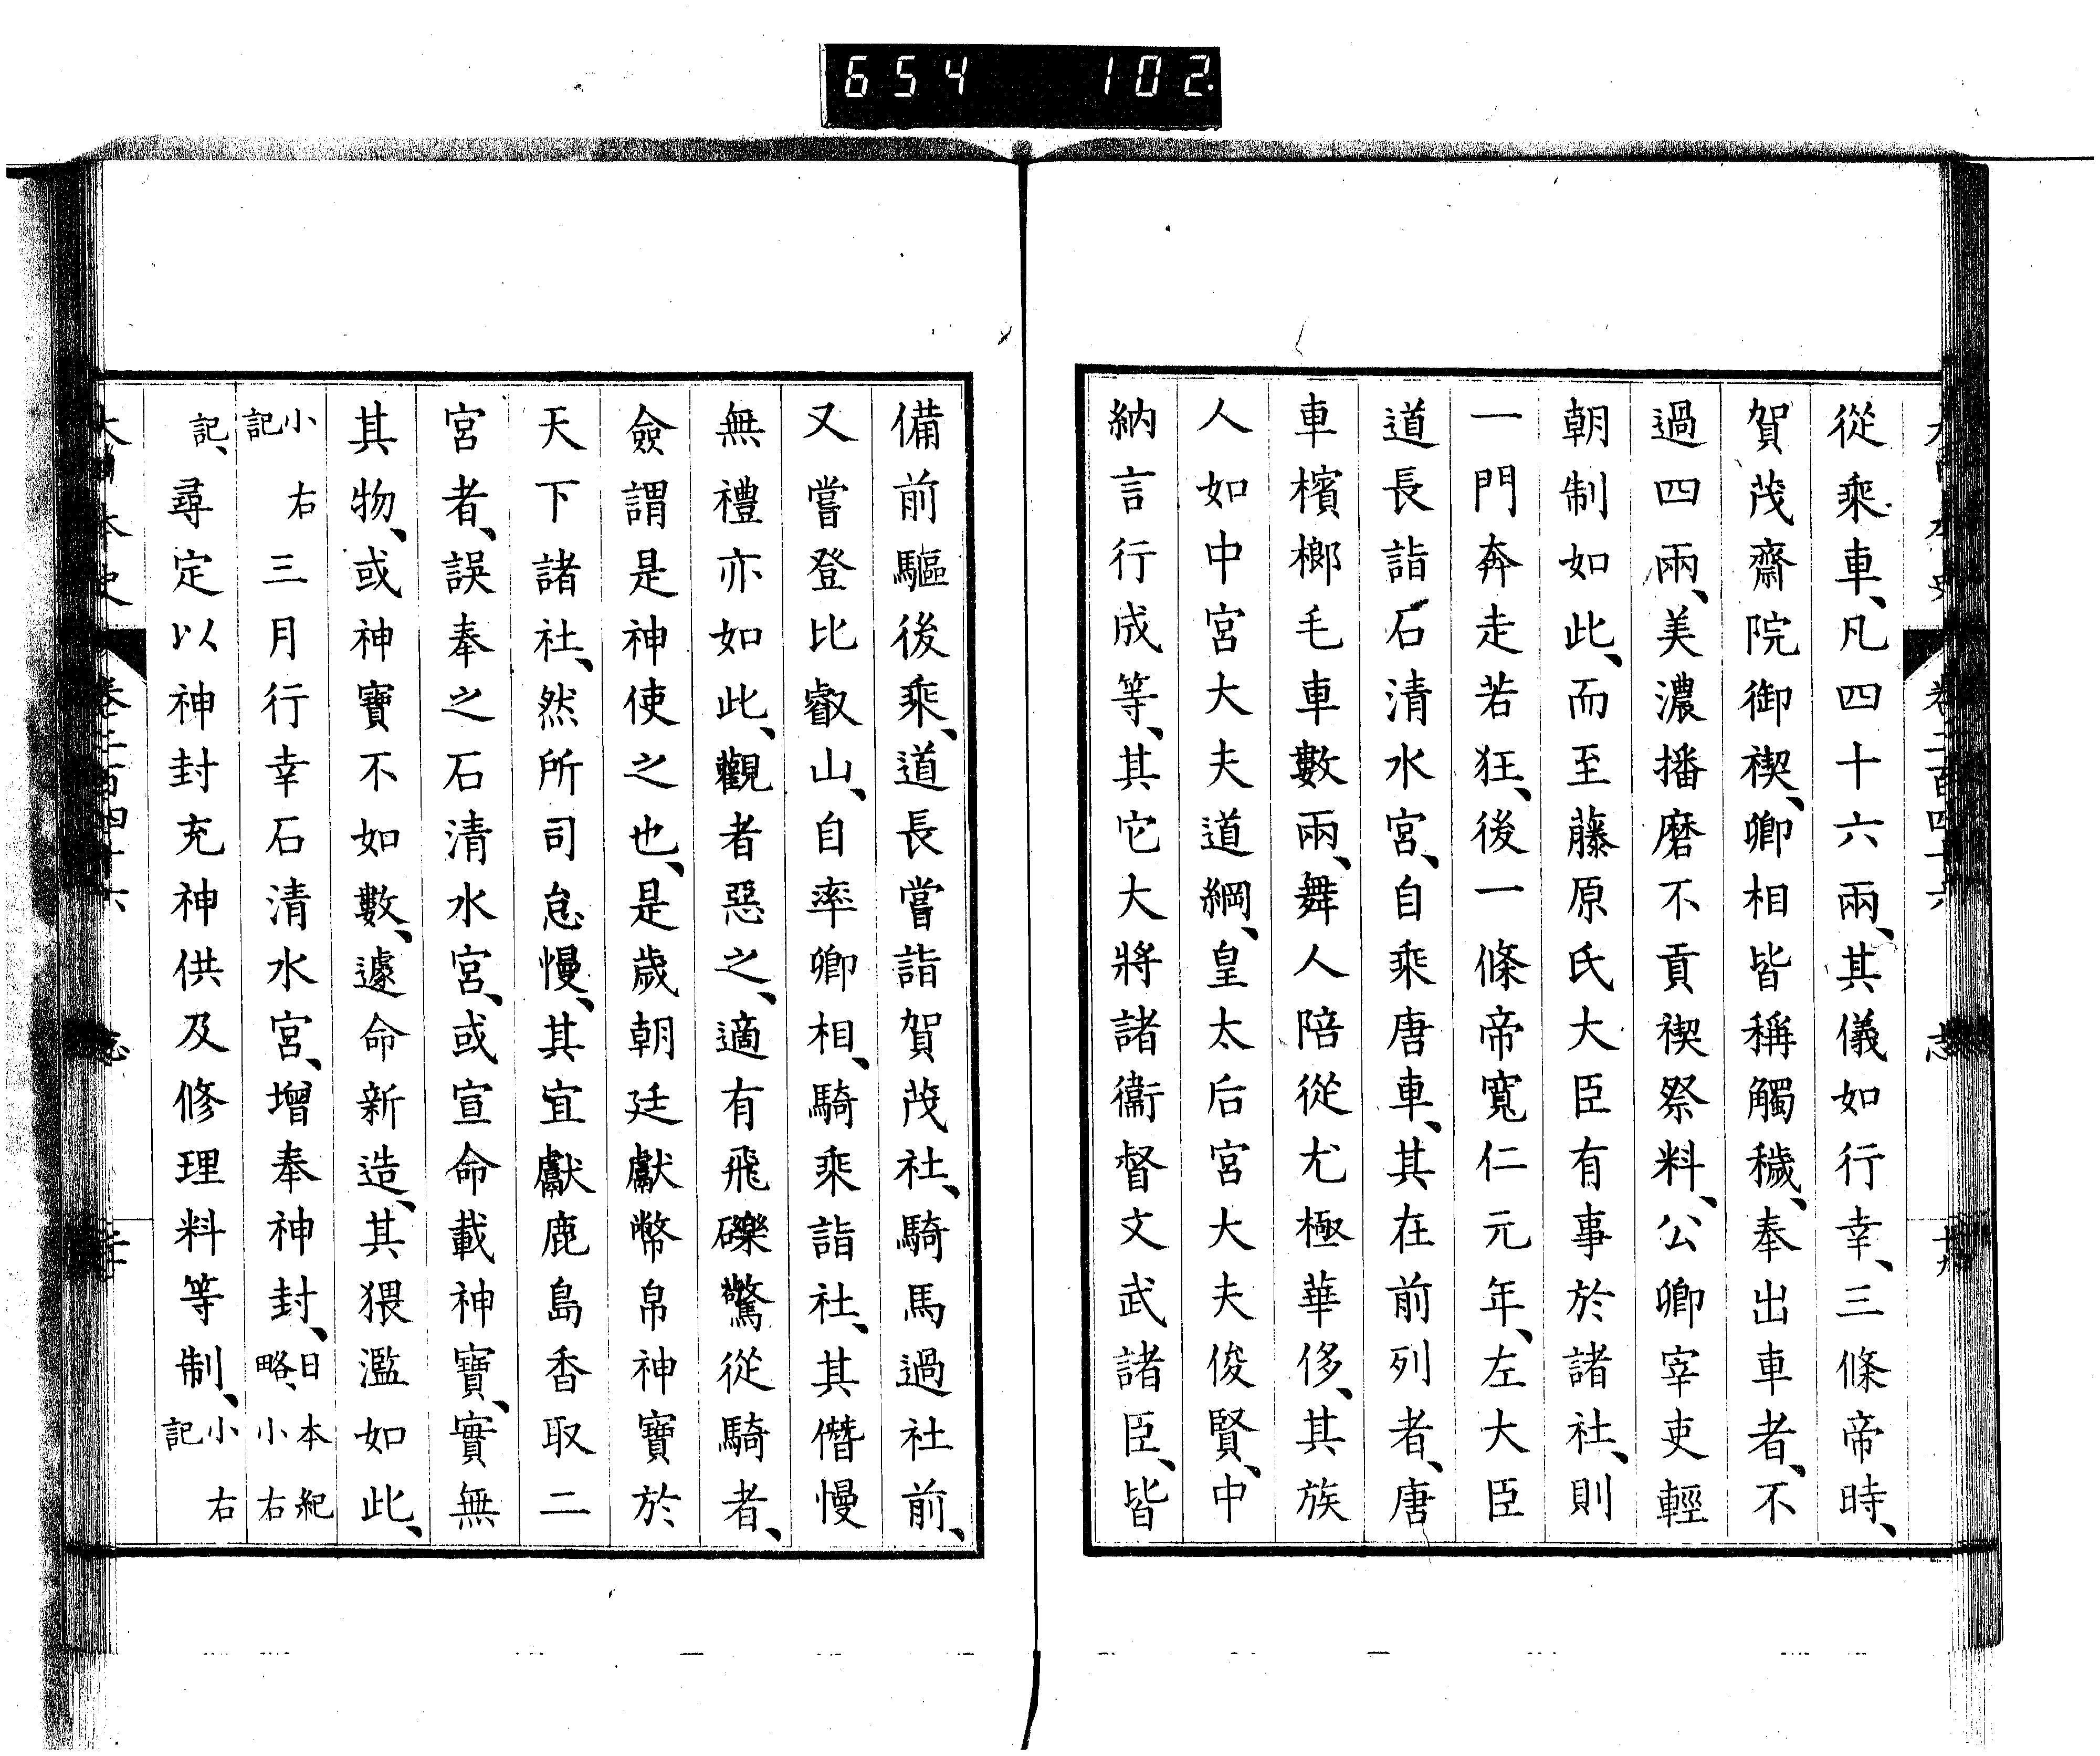 654 102
大日本史 卷二百四十六 志 十九
從乘車、凡四十六兩、其儀如行幸、三條帝時、
賀茂齋院御禊、卿相皆稱觸穢、奉出車者、不
過四兩、美濃播磨不貢禊祭料、公卿宰吏輕
朝制如此、而至藤原氏大臣有事於諸社、則
一門奔走若狂、後一條帝寬仁元年、左大臣
道長詣石清水宮、自乘唐車、其在前列者、唐
車檳榔毛車數兩、舞人陪從尤極華侈、其族
人如中宮大夫道綱、皇太后宮大夫俊賢、中
納言行成等、其它大將諸衞督文武諸臣、皆
備前驅後乘、道長嘗詣賀茂社、騎馬過社前、
又嘗登比叡山、自率卿相、騎乘詣社、其僭慢
無禮亦如此、觀者惡之、適有飛礫驚從騎者、
僉謂是神使之也、是歲朝廷獻幣帛神寶於
天下諸社、然所司怠慢、其宜獻鹿島香取二
宮者、誤奉之石清水宮、或宣命載神寶、實無
其物、或神寶不如數、遽命新造、其猥濫如此、
小右記 三月行幸石清水宮、增奉神封、日本紀略、小右
記、尋定以神封充神供及修理料等制、小右記
大日本史 卷二百四十六 志 二十